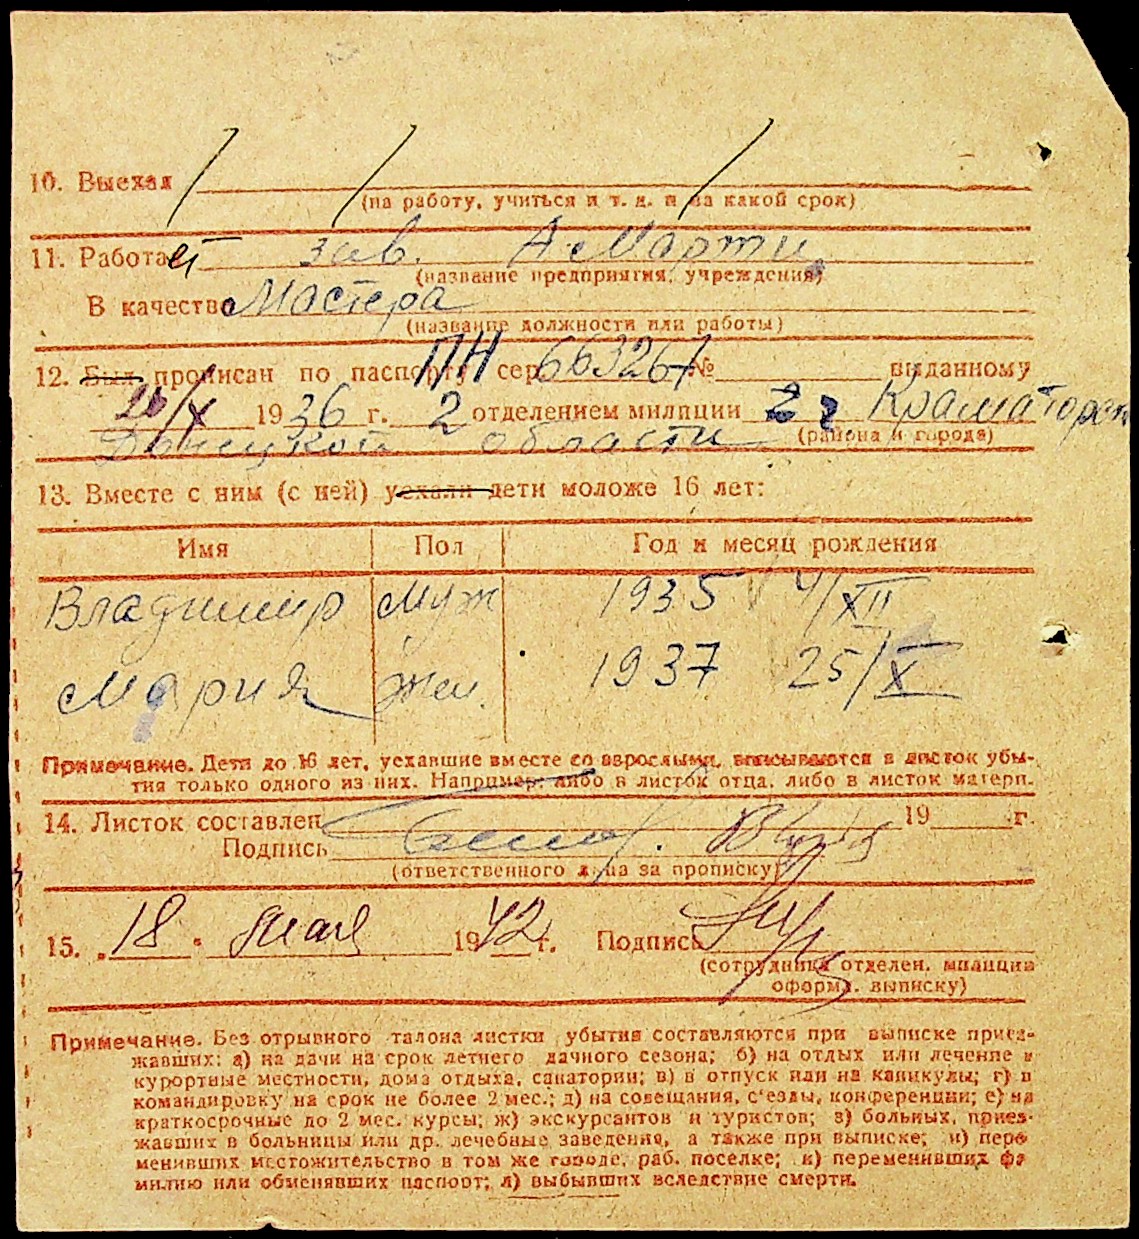 10. Выехал
(на работу, учиться и т. д. и на какой срок)
11. Работает зав. А. Марти
(название предприятия, учреждения)
В качестве Мастера
(название должности или работы)
12. Был прописан по паспорту ПН сер. 663267 № выданному
26/X 1936 г. 2 отделением милиции г Краматорск
Донецкой области (района и города)
13. Вместе с ним (с ней) уехали дети моложе 16 лет:
Имя Пол Год и месяц рождения
Владимир Муж 1935 4/XII
Мария Жен. 1937 25/X
Примечание. Дети до 16 лет, уехавшие вместе со взрослыми, вписываются в листок убы-
тия только одного из них. Например, либо в листок отца, либо в листок матери.
14. Листок составлен 19 г.
Подпись
(ответственного лица за прописку)
15. 18 . мая 1942 г. Подпись
(сотрудника отделен. милиции
оформл. выписку)
Примечание. Без отрывного талона листки убытия составляются при выписке приез-
жавших: а) на дачи на срок летнего дачного сезона; б) на отдых или лечение в
курортные местности, дома отдыха, санатории; в) в отпуск или на каникулы; г) в
командировку на срок не более 2 мес.; д) на совещания, с'езды, конференции; е) на
краткосрочные до 2 мес. курсы; ж) экскурсантов и туристов; з) больных, приез-
жавших в больницы или др. лечебные заведения, а также при выписке; и) пере
менивших местожительство в том же городе, раб. поселке; к) переменивших фа
милию или обменявших паспорт; л) выбывших вследствие смерти.